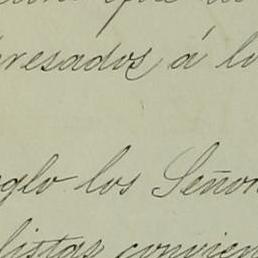 que
resados á l
glo los Señor
listas convien